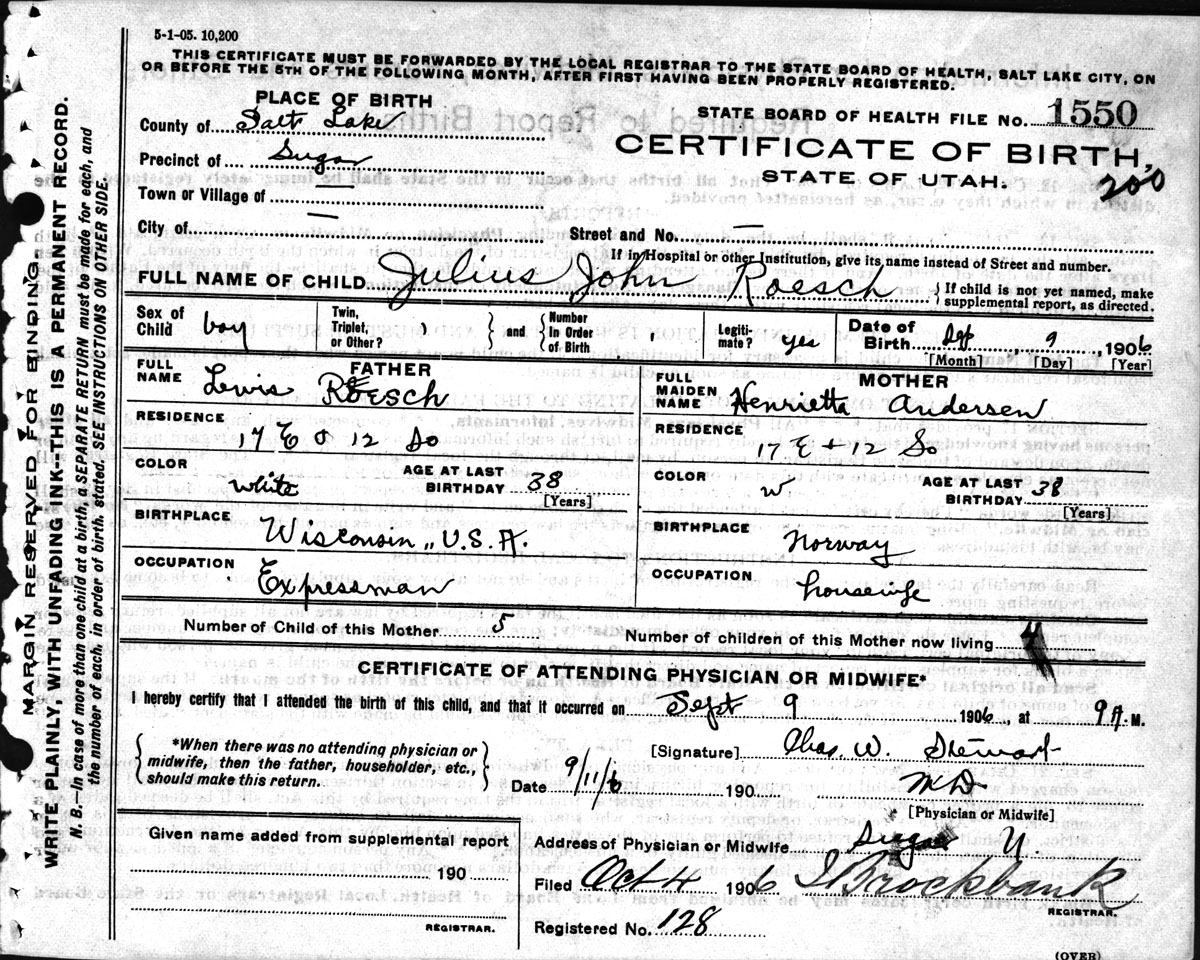 5-1-05. 10,200
THIS CERTIFICATE MUST BE FORWARDED BY THE LOCAL REGISTRAR TO THE STATE BOARD OF HEALTH, SALT LAKE CITY, ON
OR BEFORE THE 5TH OF THE FOLLOWING MONTH, AFTER FIRST HAVING BEEN PROPERLY REGISTERED.
MARGIN RESERVED FOR BINDING.
WRITE PLAINLY, WITH UNFADING INK—THIS IS A PERMANENT RECORD.
N. B.—In case of more than one child at a birth, a SEPARATE RETURN must be made for each, and
the number of each, in order of birth, stated. SEE INSTRUCTIONS ON OTHER SIDE.
PLACE OF BIRTH
County of Salt Lake
Precinct of Sugar
Town or Village of
City of —
STATE BOARD OF HEALTH FILE NO. 1550
CERTIFICATE OF BIRTH,
STATE OF UTAH.
200
Street and No. —
If in Hospital or other Institution, give its name instead of Street and number.
FULL NAME OF CHILD Julius John Roesch { If child is not yet named, make supplemental report, as directed.
Sex of Child boy Twin, Triplet, or Other? } and { Number In Order of Birth Legiti-mate? yes Date of Birth Sept 9, 1906
[Month] [Day] [Year]
FATHER
FULL NAME Lewis Roesch
RESIDENCE
17 E & 12 So
COLOR white AGE AT LAST BIRTHDAY 38
[Years]
BIRTHPLACE
Wisconsin, U.S.A.
OCCUPATION
Expressman
MOTHER
FULL MAIDEN NAME Henrietta Andersen
RESIDENCE
17 E + 12 So
COLOR W AGE AT LAST BIRTHDAY 38
[Years]
BIRTHPLACE
Norway
OCCUPATION
housewife
Number of Child of this Mother 5
Number of children of this Mother now living 4
CERTIFICATE OF ATTENDING PHYSICIAN OR MIDWIFE*
I hereby certify that I attended the birth of this child, and that it occurred on Sept 9 1906, at 9 A.M.
{ *When there was no attending physician or
midwife, then the father, householder, etc.,
should make this return. }
[Signature] Chas. W. Stewart
Date 9/11/6 190 M D.
[Physician or Midwife]
Given name added from supplemental report
190
REGISTRAR.
Address of Physician or Midwife Sugar
Filed Oct 4 1906 Brockbank
REGISTRAR.
Registered No. 128
(OVER)